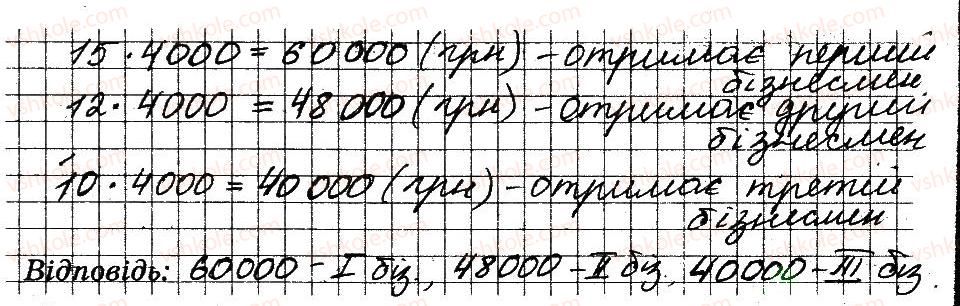 15 · 4000 = 60 000 (грн) - отримає перший
бізнесмен
12 · 4000 = 48 000 (грн) - отримає другий
бізнесмен
10 · 4000 = 40 000 (грн) - отримає третій
бізнесмен
Відповідь: 60000 - I біз., 48000 - II біз, 40000 - III біз.